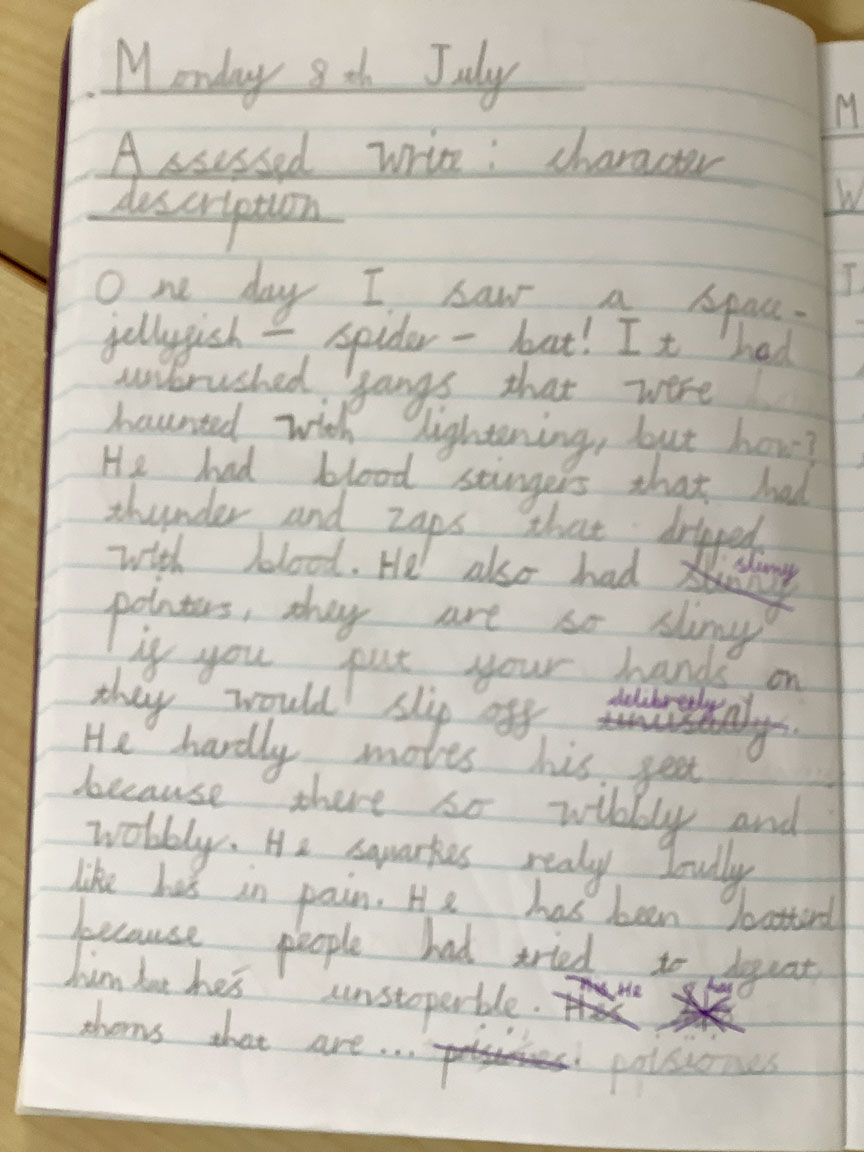 Monday 8th July
Assessed write: character
description
One day I saw a space-
jellyfish - spider - bat! It had
unbrushed fangs that were
haunted with lightening, but how?
He had blood stingers that had
thunder and zaps that dripped
with blood. He also had slimy
pointers, they are so slimy
if you put your hands on
they would slip off delibretly
He hardly moves his feet
because there so wibbly and
wobbly. He squarkes realy loully
like he's in pain. He has been batterd
because people had tried to defeat
him but he's unstoperble. He has
thorns that are... poisiones